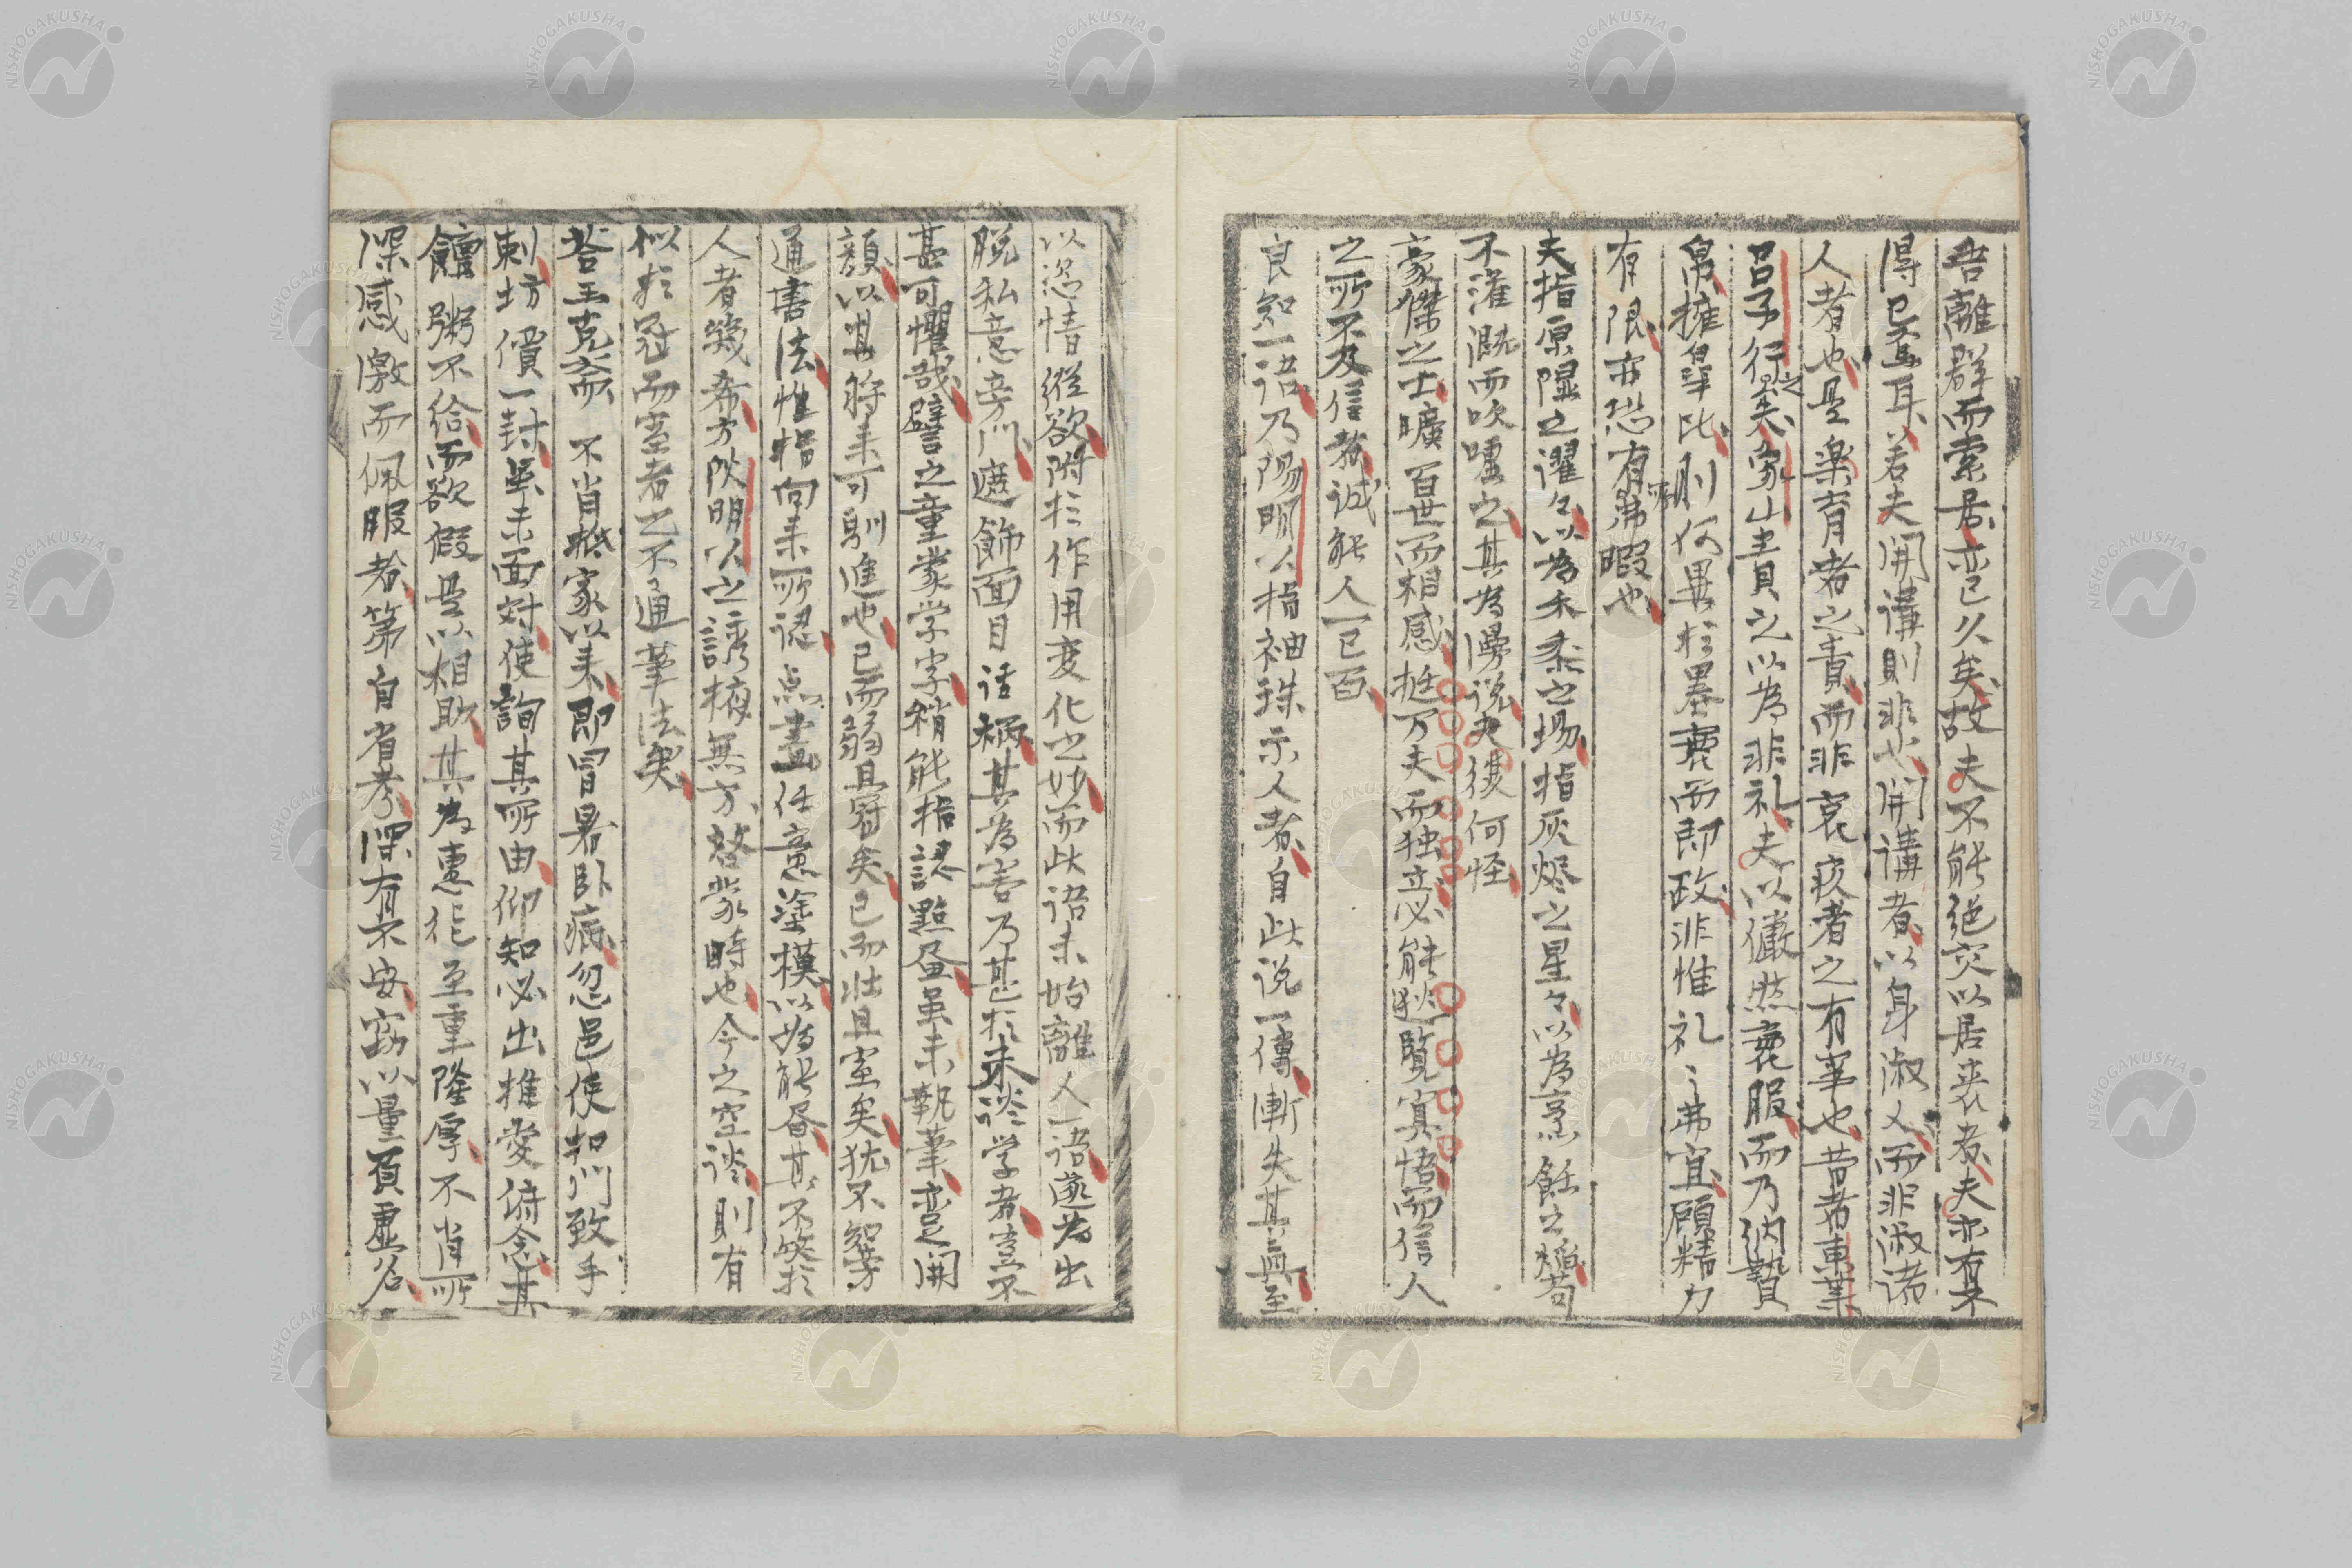 吾離群而索居亦已久矣故夫不能絶交以居喪者夫亦有不
得已焉耳若夫開講則非也開講者以身淑人而非淑諸
人者也是樂育者之責而非哀疚者之有事也昔者東莱
呂子行之矣象山責之以為非礼夫以儼然衰服而乃納贄
帛擁皐比則何異於墨衰而即政非惟礼之弗宜顧精力
有限亦恐有所弗暇也
夫指原隰之濯々以為禾黍之場指灰燼之星々以為烹飪之猶苟
不灌漑而吹嘘之其為謾説夫復何怪
豪傑之士曠百世而相感挺万夫而独立必能逖覽冥悟而信人
之所不及信教誠能人一已百
良知一語乃陽明以指袖珠示人者自此説一傳漸失其真至
以恣情縱欲附於作用変化之妙而此語未始離人一語遂為出
脱私意旁門遮飾面目話柄其為害乃甚於未談学者豈不
甚可懼哉譬之童蒙学字稍能指認點畫虽未執筆亦足開
顔以其将来可馴進也已而弱且冠矣已而壮且室矣犹不知旁
通書法惟指向来所認点畫任意塗模以為能畫其不笑於
人者幾希方陽明以之誘掖無方啓蒙時也今之空談則有
似於冠而室者之不通筆法矣
答王克斎 不肖罷家以来即冒暑臥病忽邑使扣門致手
剌坊價一封虽未面対使詢其所由仰知必出推愛俯念其
饘粥不給而欲假是以相助其為惠化至重隆厚不肖所
深感激而佩服者第自省考深有不安竊以量頁虚名